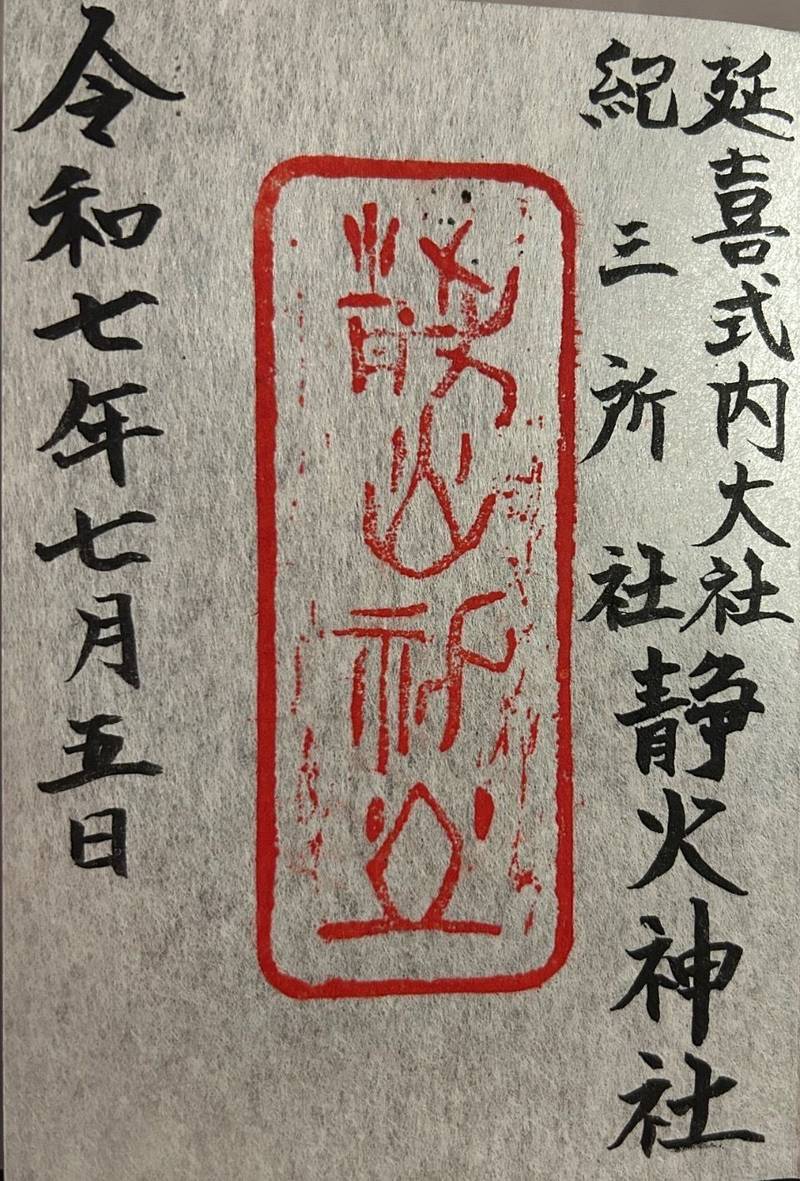 延喜式内大社
紀三所社
静火神社
令和七年七月五日